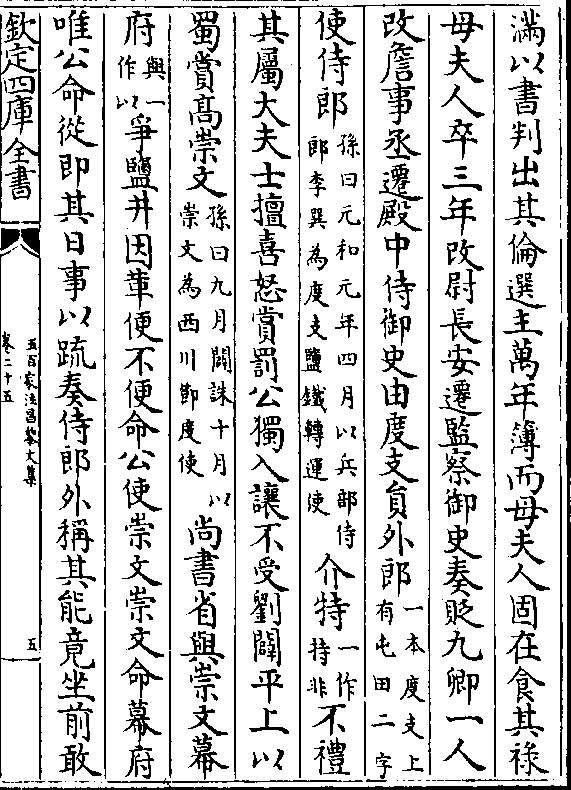 滿以書判出其倫選主萬年簿而母夫人固在食其祿
母夫人卒三年改尉長安遷監察御史奏貶九卿一人
改詹事丞遷殿中侍御史由度支員外郎一本度支上有屯田二字
使侍郎孫曰元和元年四月以兵部侍郎李巽為度支鹽鐵轉運使介特一作持非不禮
其屬大夫士擅喜怒賞罰公獨入讓不受劉闢平上以
蜀賞高崇文孫曰九月闢誅十月以崇文為西川節度使尚書省與崇文幕
府與一作以爭鹽井因革便不便命公使崇文崇文命幕府
唯公命從即其日事以䟽奏侍郎外稱其能竟坐前敢
欽定四庫全書
五百家注昌黎文集
卷二十五
五